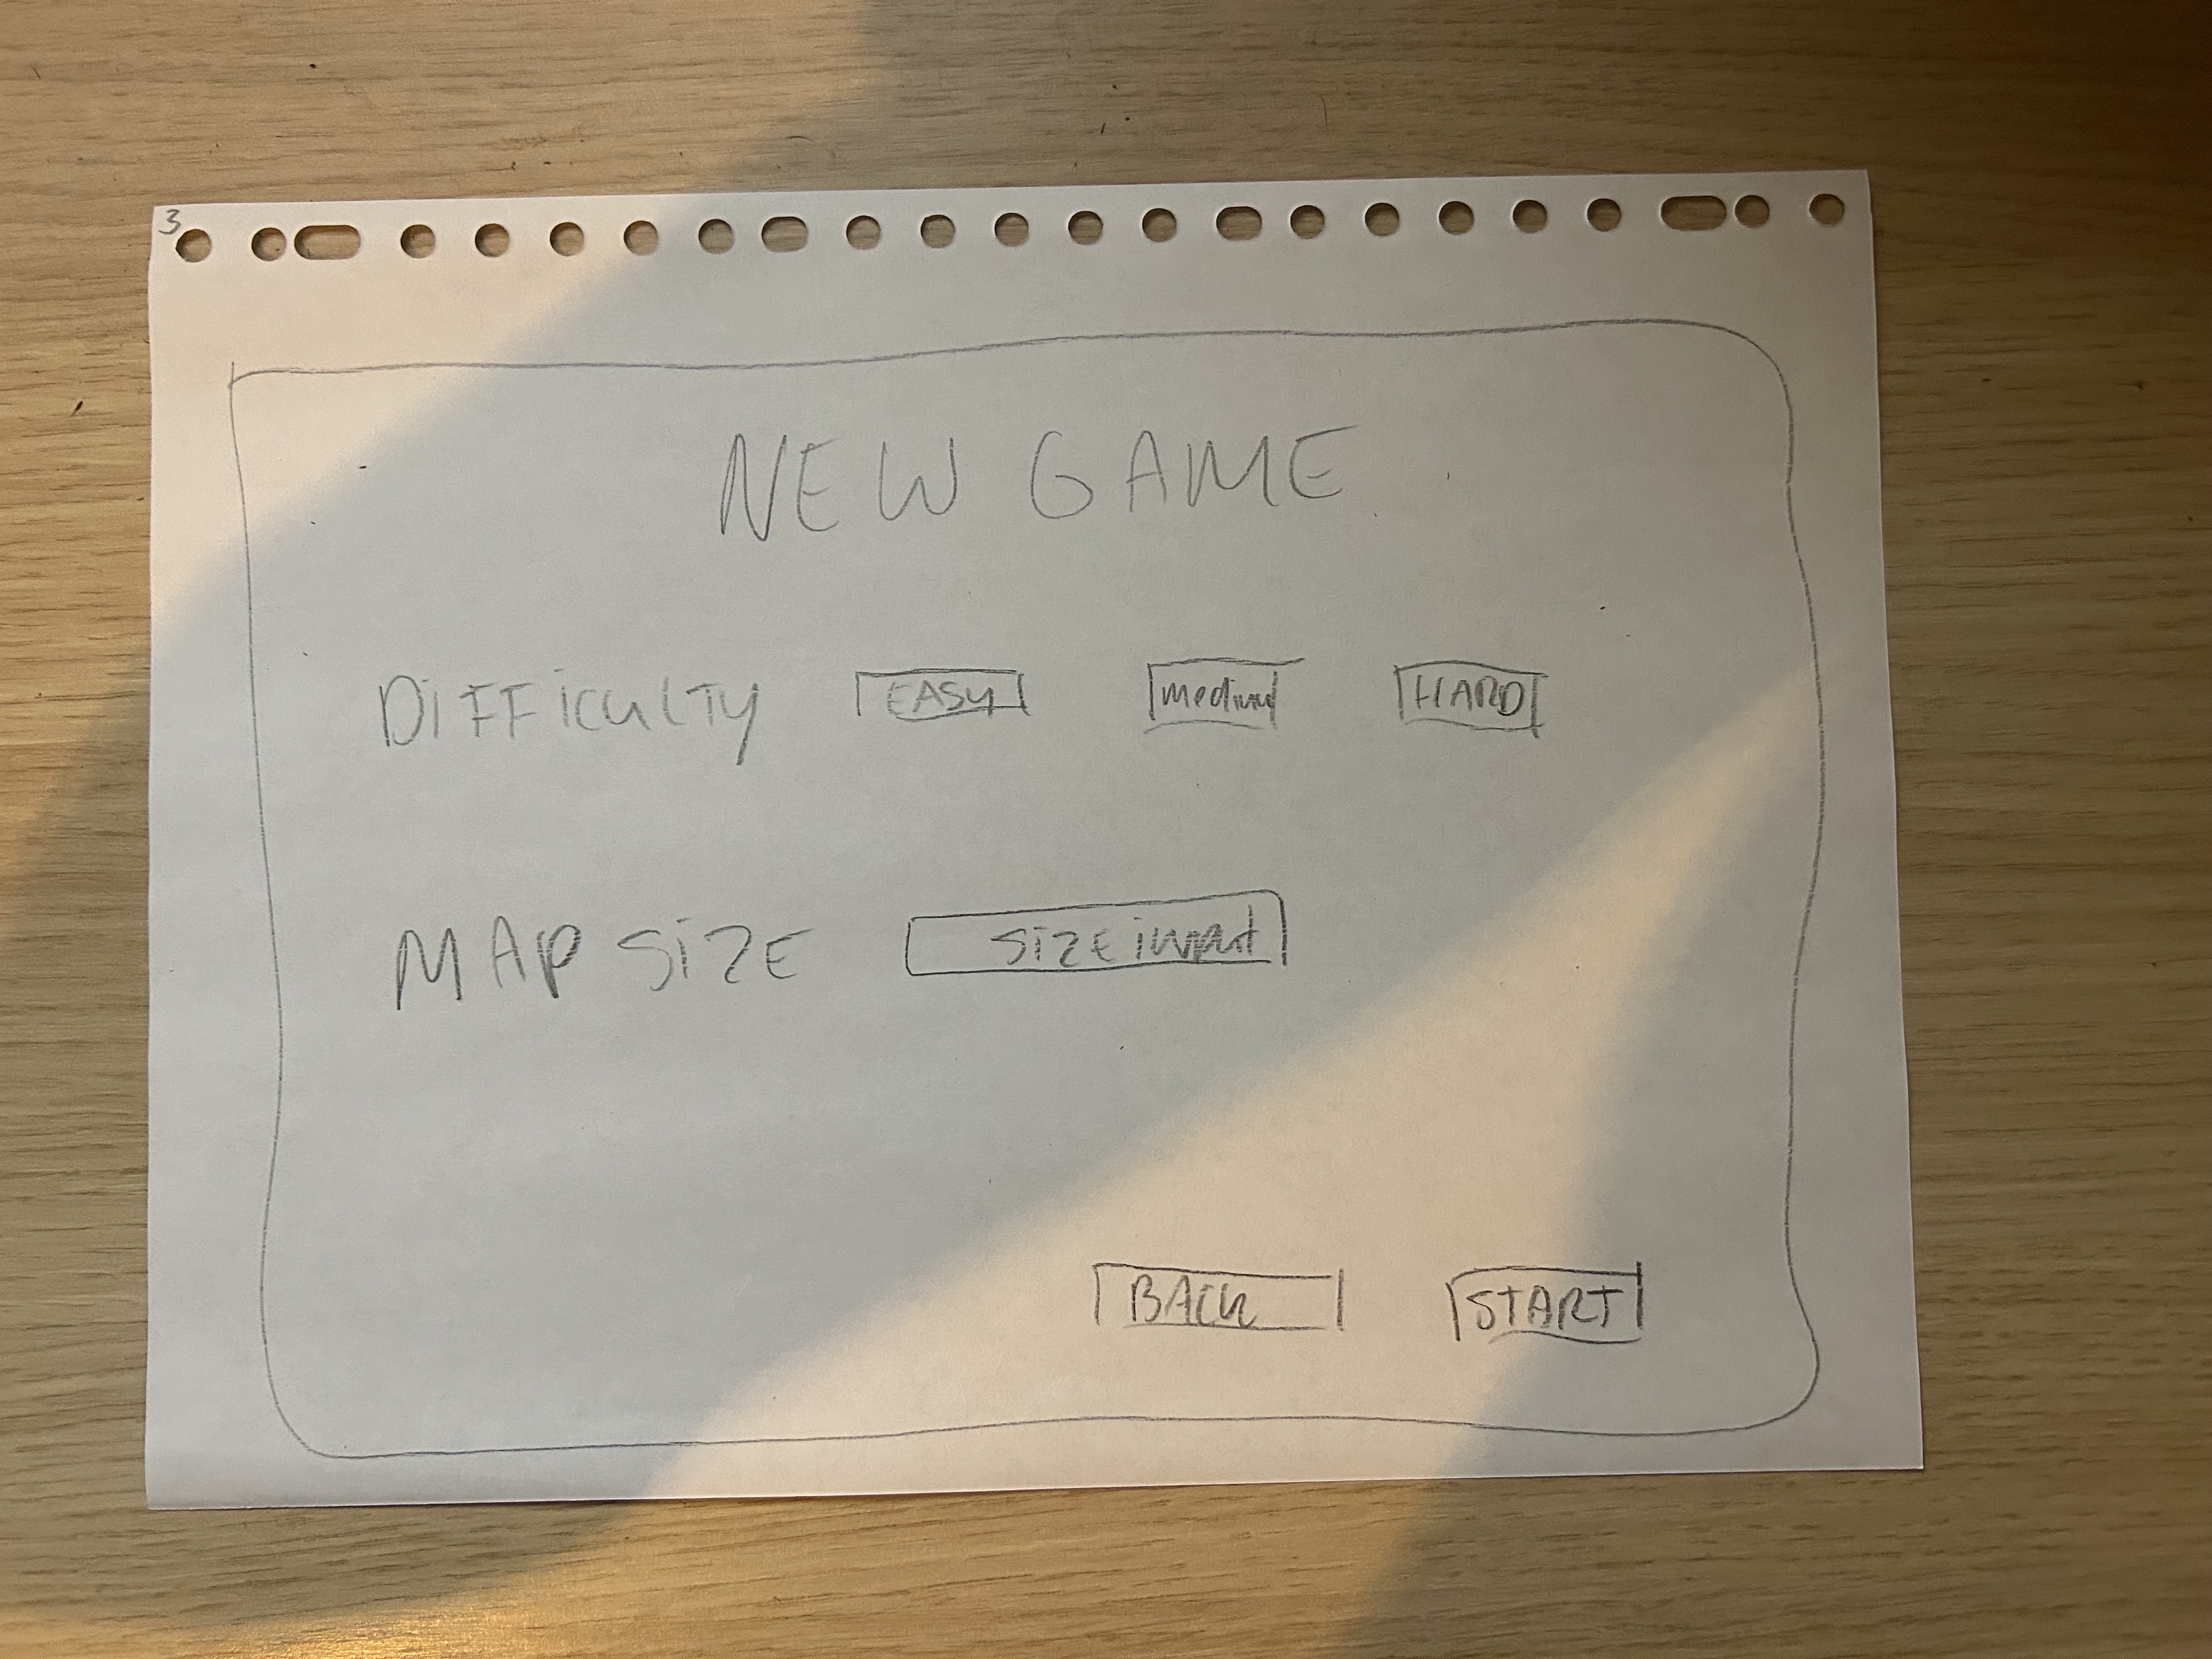 3
NEW GAME
DIFFICULTY EASY Medium HARD
MAP SIZE SIZE input
BACK START